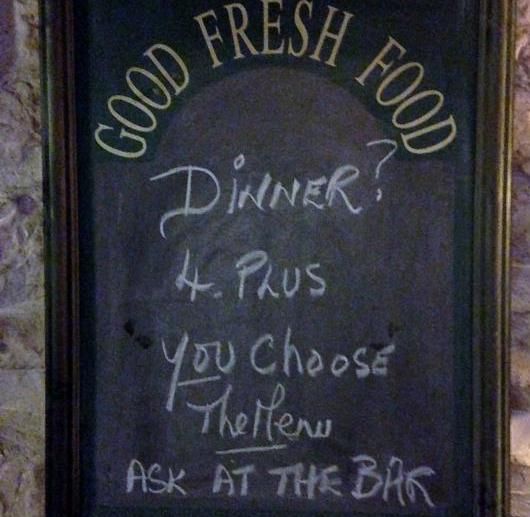 GOOD FRESH FOOD
DiNNER?
4. PLUS
you Choose
The Menu
ASK AT THE BAR